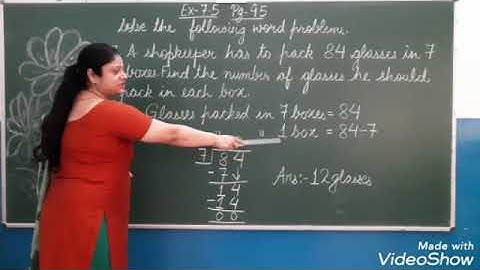 Ex-7.5 Pg-95
Solve the following word problems.
A shopkeeper has to pack 84 glasses in 7
boxes. Find the number of glasses he should
pack in each box.
Glasses packed in 7 boxes = 84
1 box = 84÷7
7 84
-7↓
14
-14
00
Ans:-12 glasses
Made with
VideoShow